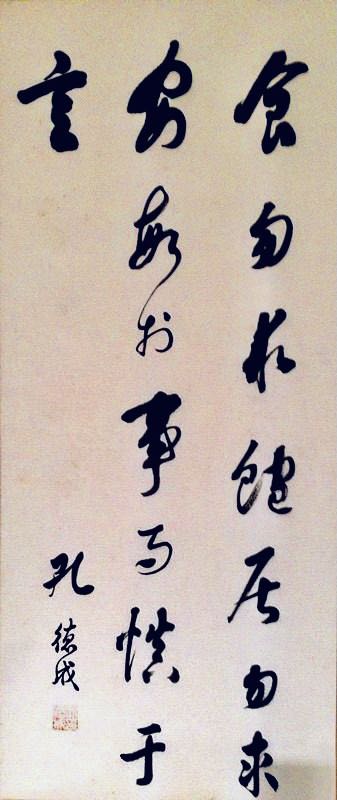 食勿求飽居勿求
安敏於事而慎于
言
孔德成